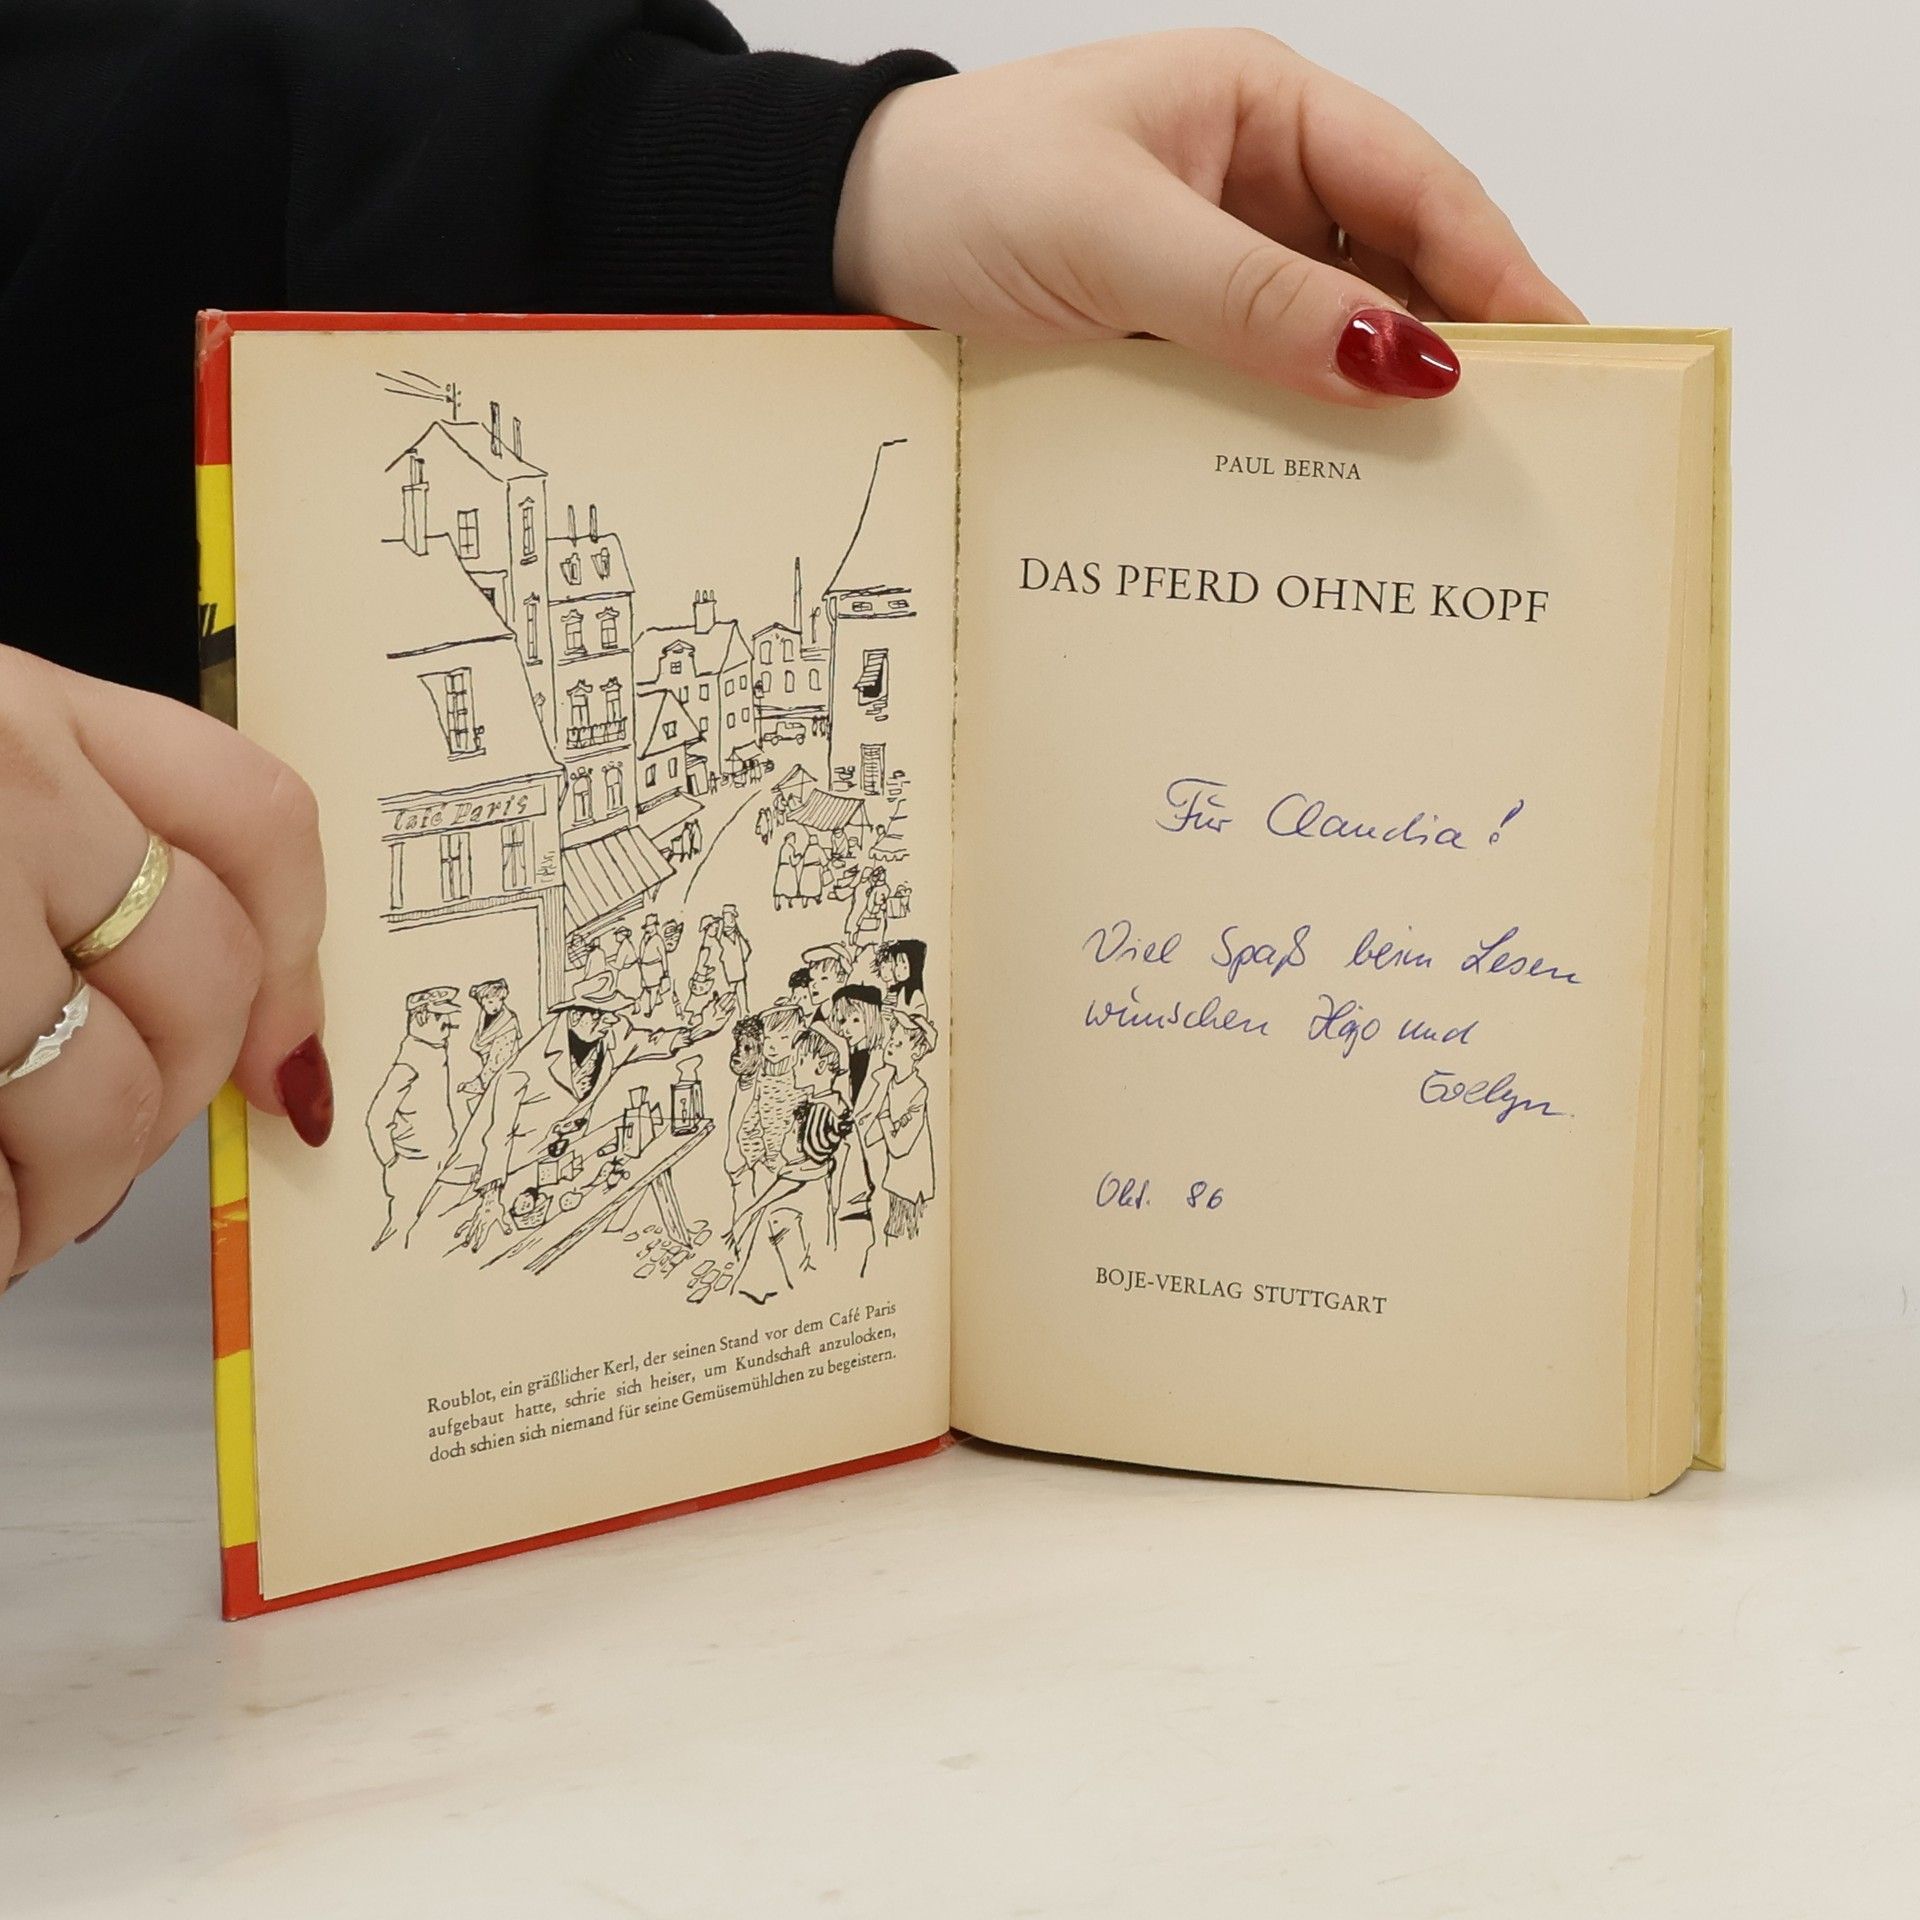 Café Paris
Roublot, ein gräßlicher Kerl, der seinen Stand vor dem Café Paris
aufgebaut hatte, schrie sich heiser, um Kundschaft anzulocken,
doch schien sich niemand für seine Gemüsemühlchen zu begeistern.
PAUL BERNA
DAS PFERD OHNE KOPF
Für Claudia!
Viel Spaß beim Lesen
wünschen Hajo und
Evelyn
Okt. 86
BOJE-VERLAG STUTTGART